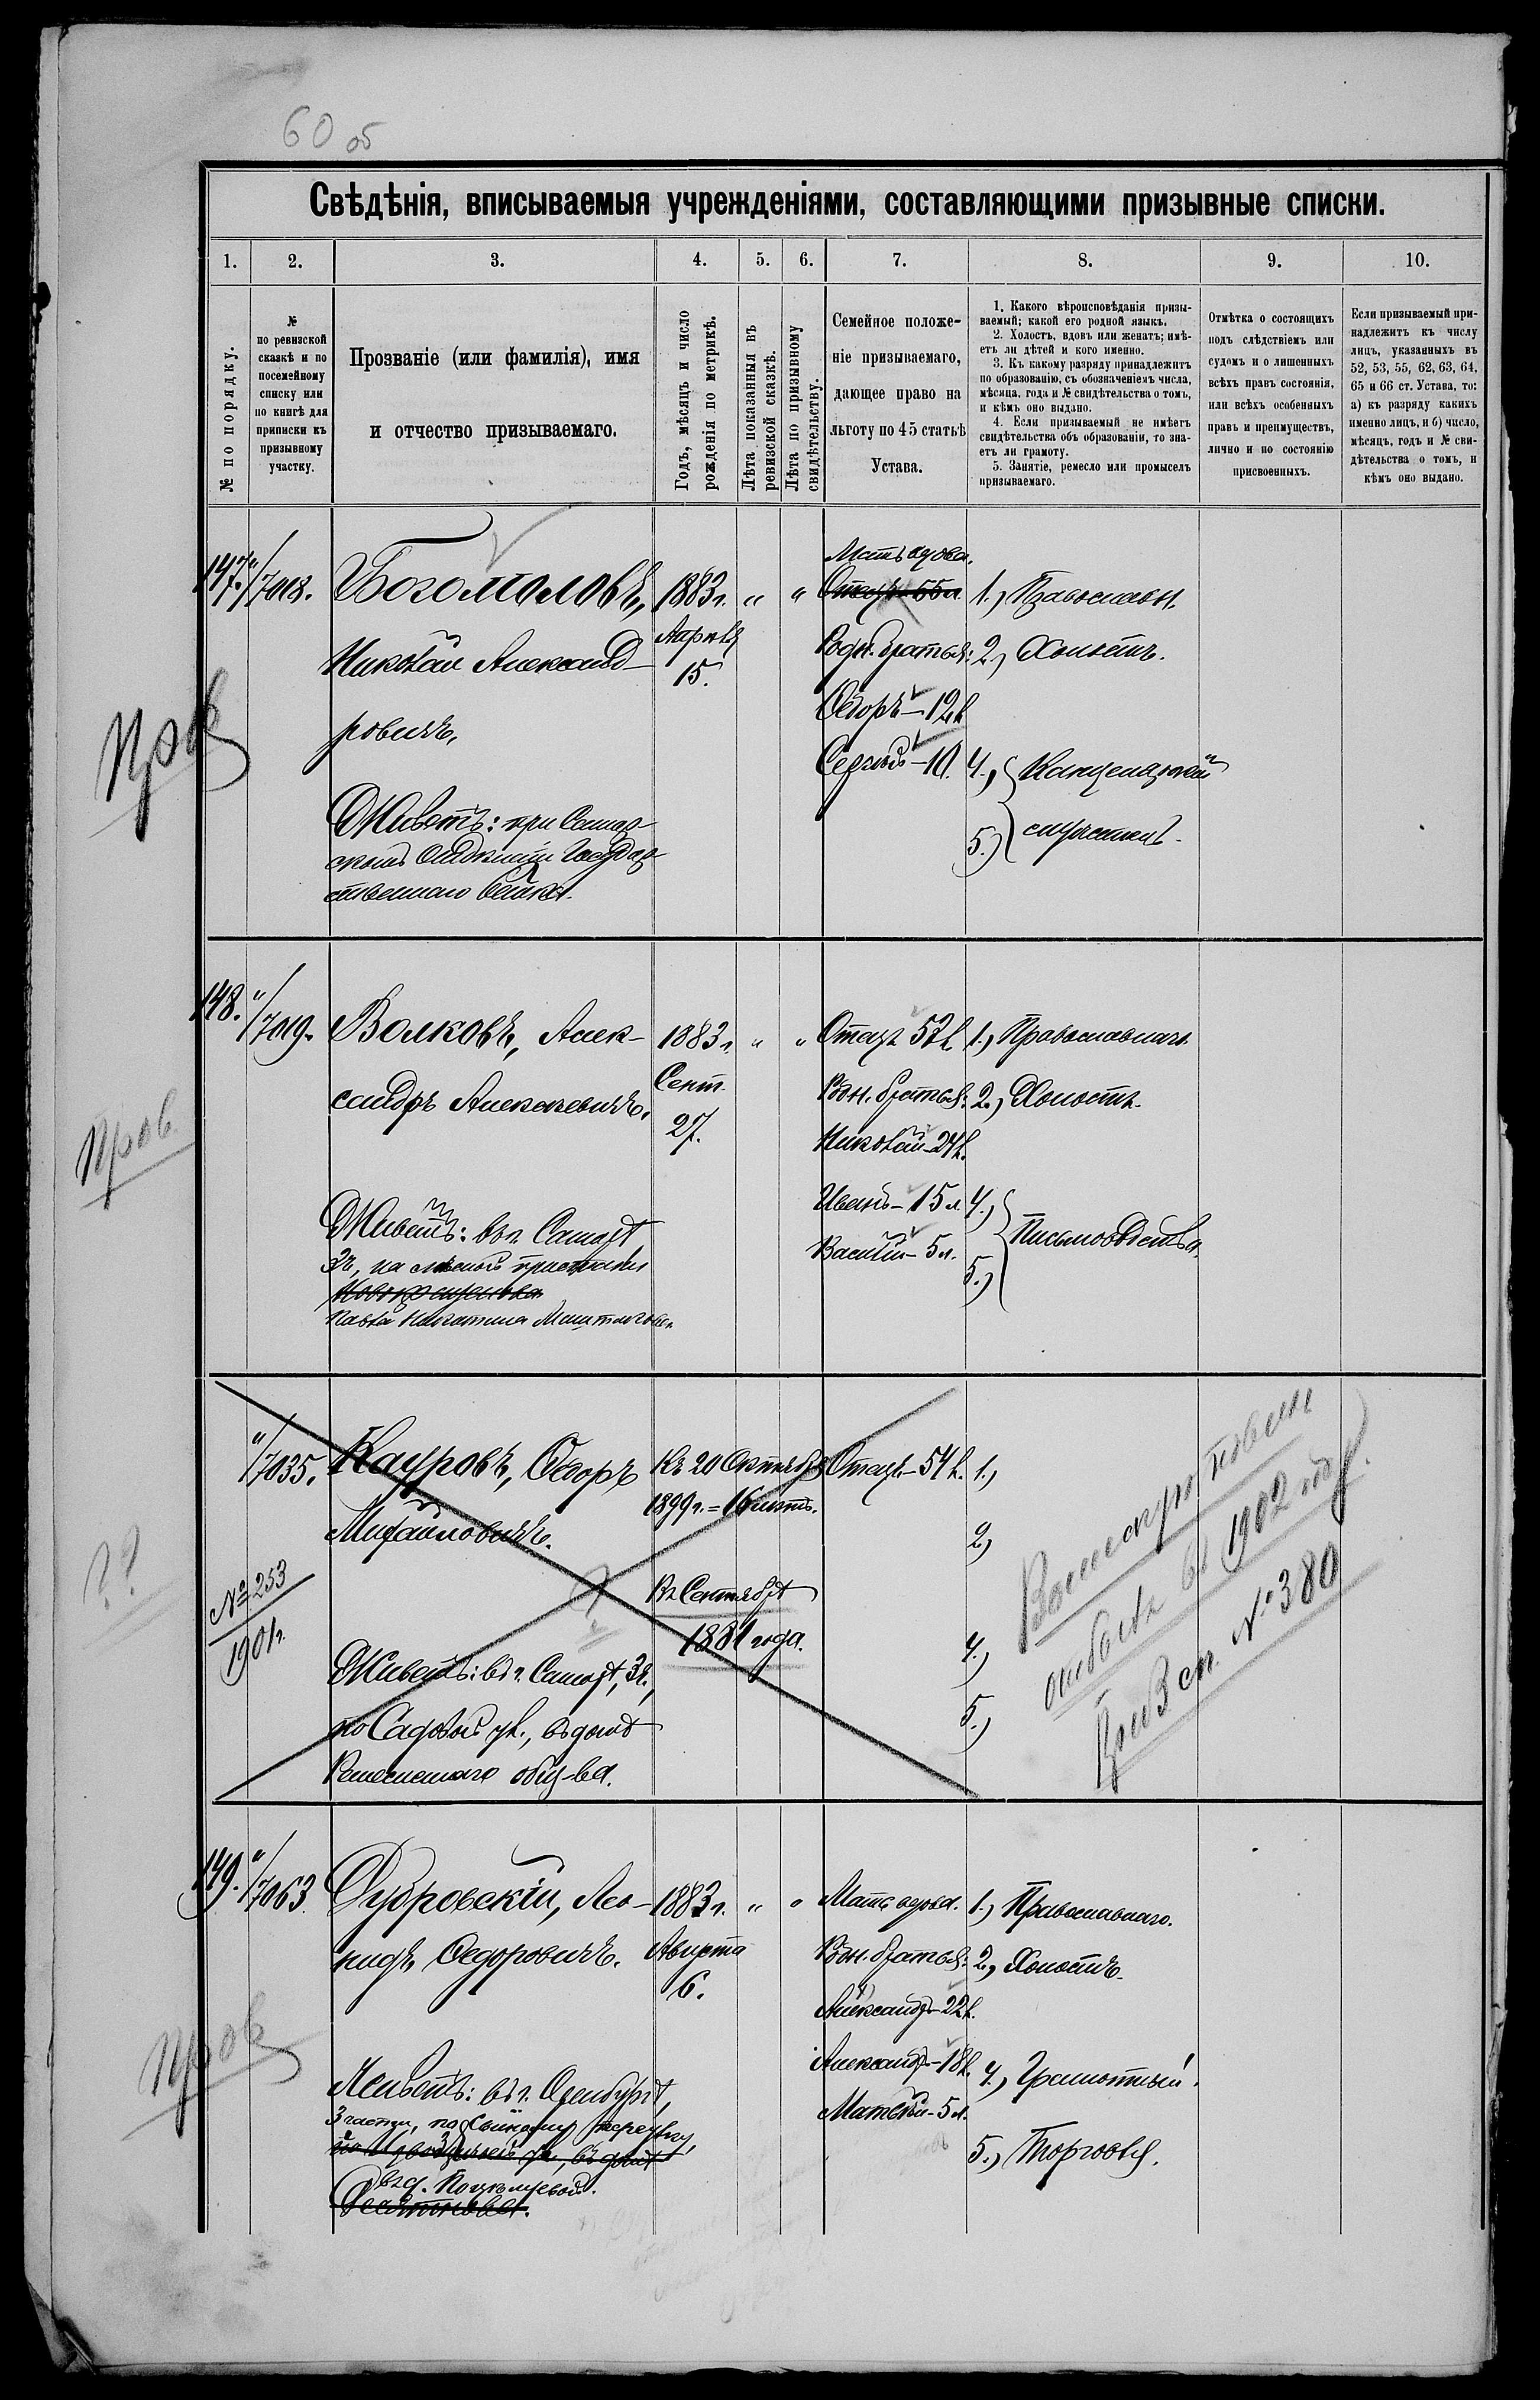 60 об
Свѣдѣнія, вписываемыя учрежденіями, составляющими призывные списки.
1. 2. 3. 4. 5. 6. 7. 8. 9. 10.
№ по порядку.
№
по ревизской
сказкѣ и по
посемейному
списку или
по книгѣ для
приписки къ
призывному
участку.
Прозваніе (или фамилія), имя
и отчество призываемаго.
Годъ, мѣсяцъ и число
рожденія по метрикѣ.
Лѣта показанныя въ
ревизской сказкѣ.
Лѣта по призывному
свидѣтельству.
Семейное положе-
ніе призываемаго,
дающее право на
льготу по 45 статьѣ
Устава.
1. Какого вѣроисповѣданія призы-
ваемый; какой его родной языкъ.
2. Холостъ, вдовъ или женатъ; имѣ-
етъ ли дѣтей и кого именно.
3. Къ какому разряду принадлежитъ
по образованію, съ обозначеніемъ числа,
мѣсяца, года и № свидѣтельства о томъ,
и кѣмъ оно выдано.
4. Если призываемый не имѣетъ
свидѣтельства объ образованіи, то зна-
етъ ли грамоту.
5. Занятіе, ремесло или промыселъ
призываемаго.
Отмѣтка о состоящихъ
подъ слѣдствіемъ или
судомъ и о лишенныхъ
всѣхъ правъ состоянія,
или всѣхъ особенныхъ
правъ и преимуществъ,
лично и по состоянію
присвоенныхъ.
Если призываемый при-
надлежитъ къ числу
лицъ, указанныхъ въ
52, 53, 55, 62, 63, 64,
65 и 66 ст. Устава, то:
а) къ разряду какихъ
именно лицъ, и б) число,
мѣсяцъ, годъ и № сви-
дѣтельства о томъ, и
кѣмъ оно выдано.
Пров
147. "/7018.
Богомоловъ,
Николай Александ-
ровичъ,
Живетъ: при Самар-
скомъ Отдѣленіи Государ-
ственнаго Банка.
1883 г.
Апрѣля
15.
" "
Мать вдова.
Отецъ 55 л.
Родн. братья:
Ѳедоръ - 12 л.
Сергѣй - 10.
1.) Православн.
2.) Холостъ.
4.) Канцелярскій
5.) служитель.
пров
148. "/7019.
Волковъ, Алек-
сандръ Алексѣевичъ,
Живетъ: въ г. Самарѣ
3 ч., на лѣсной пристани
Павла Никитича
1883 г.
Сент.
27.
" "
Отецъ 52 л.
Родн. братья:
Николай - 24 л.
Иванъ - 15 л.
Василій - 5 л.
1.) Православнаго
2.) Холостъ.
4.)
5.) Письмоводства.
??
"/7035.
№ 253
1901 г.
Кауровъ, Ѳедоръ
Михайловичъ.
Живетъ: въ г. Самарѣ, 3 ч.,
по Садовой ул., въ домѣ
Ремесленнаго общ-ва.
Къ 20 Октября
1899 г. = 16 лѣтъ.
Въ Сентябрѣ
1881 года.
Отецъ - 54 л.
1.)
2.)
4.)
5.)
отбылъ въ 1902 году.
Приз. сп. № 380
пров
149. "/7063.
Дубровскій, Лео-
нидъ Ѳедоровичъ.
Живетъ: въ г. Оренбургѣ,
3 части, по переулку,
въ д.
1883 г.
Августа
6.
" "
Мать вдова.
Родн. братья:
Александръ - 22 л.
Александръ - 18 л.
Матвѣй - 5 л.
1.) Православнаго.
2.) Холостъ.
4.) Грамотный.
5.) Торговля.